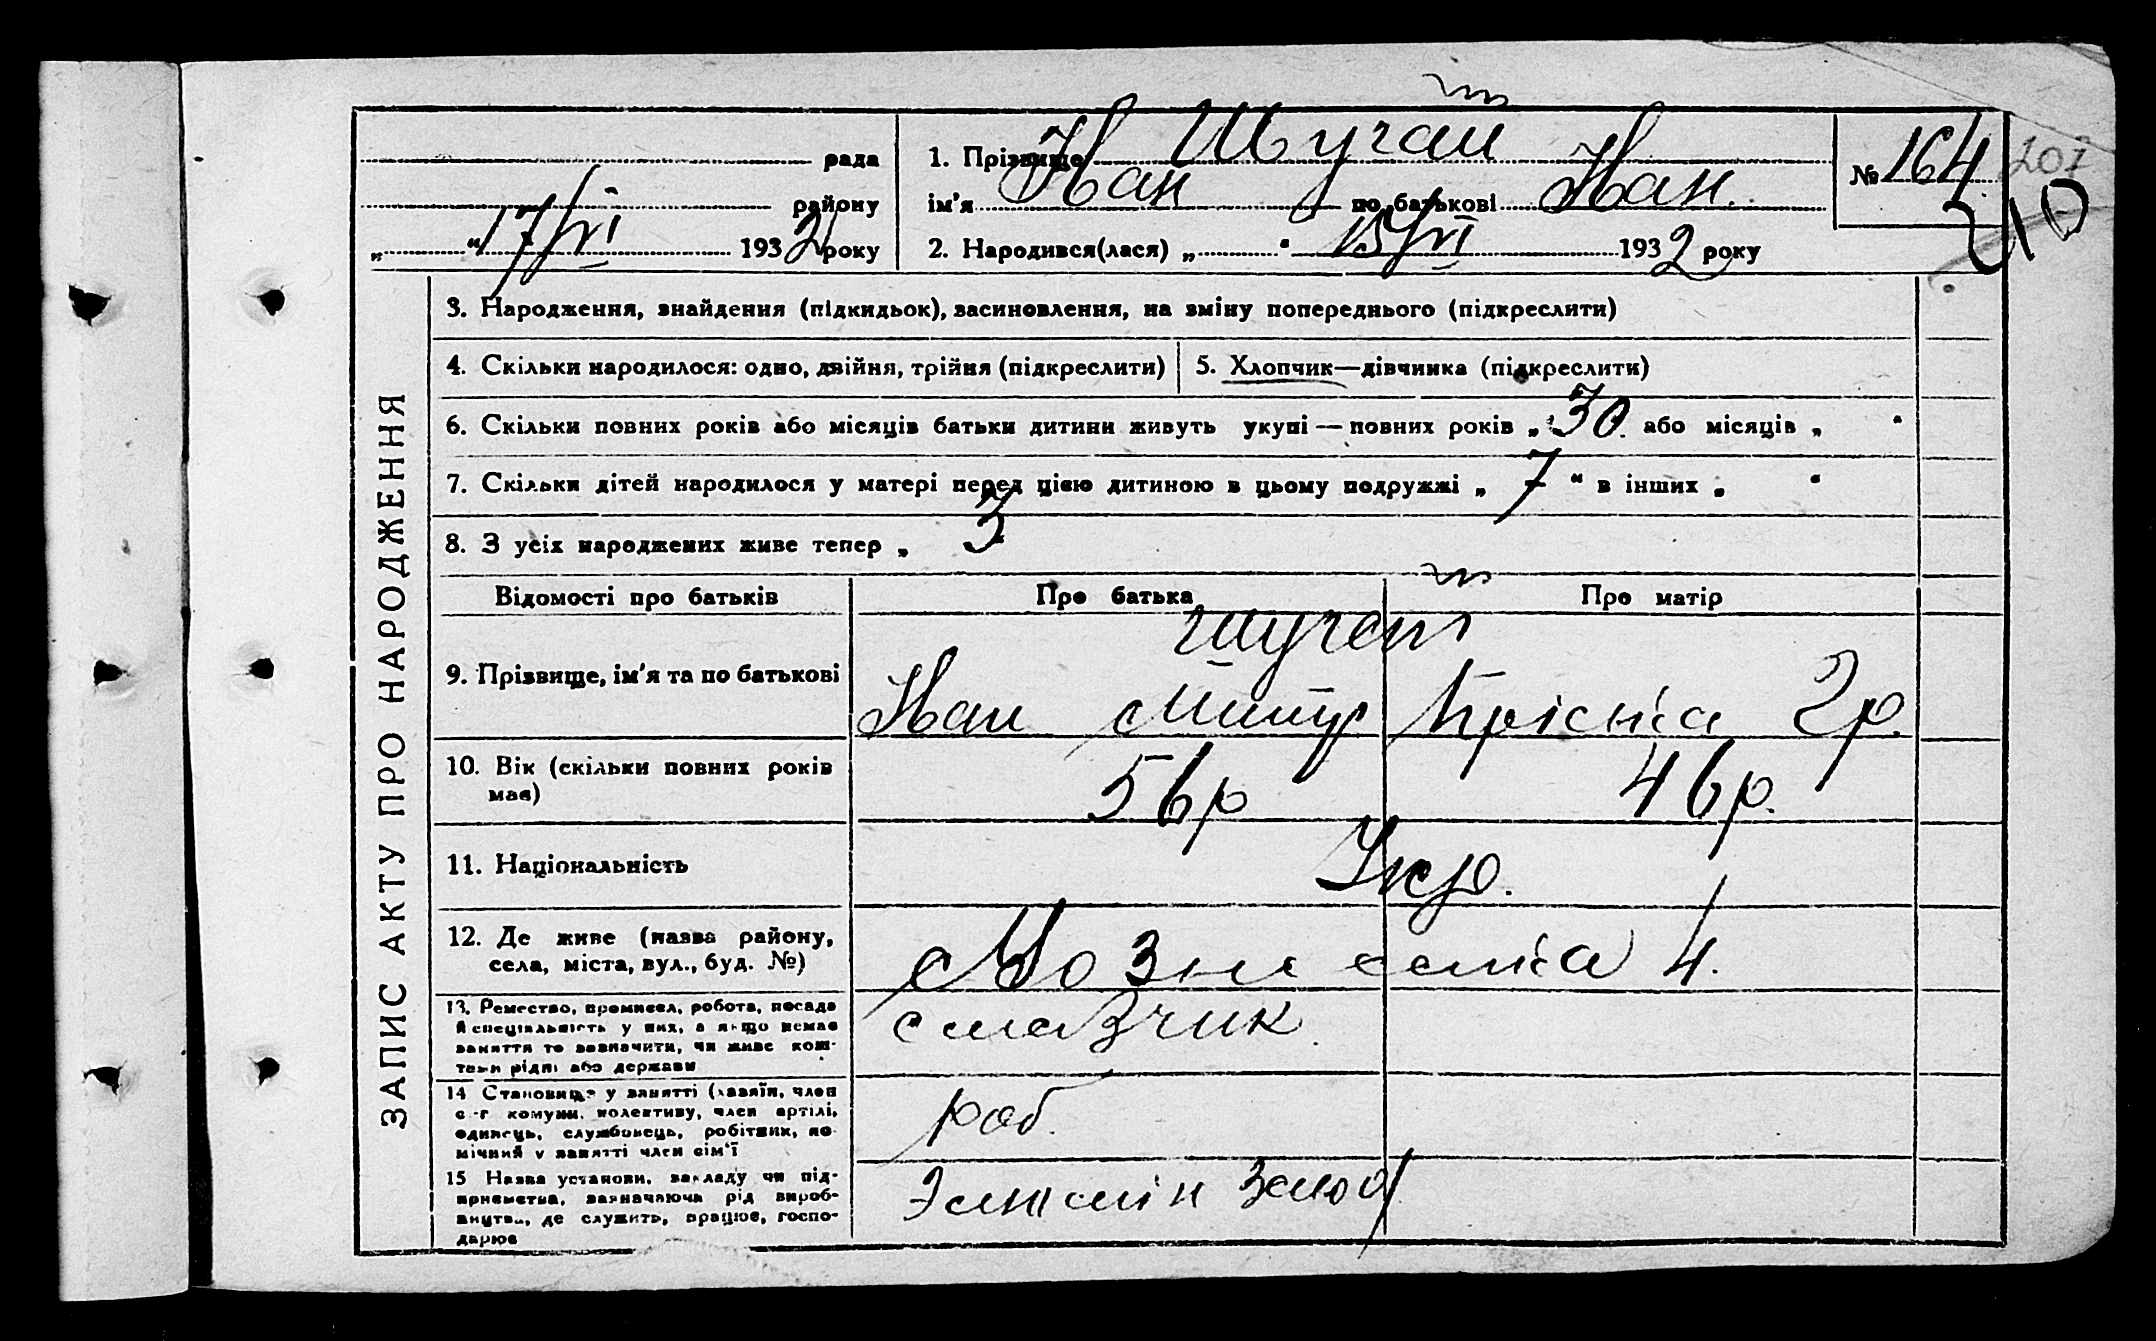 ЗАПИС АКТУ ПРО НАРОДЖЕННЯ
рада
району
„ “ 17/VI 1932 року
1. Прізвище Шугай
ім'я Іван по батькові Іван.
2. Народився(лася) „ “ 15/VI 1932 року
№ 164
207
210
3. Народження, знайдення (підкидьок), засиновлення, на зміну попереднього (підкреслити)
4. Скільки народилося: одно, двійня, трійня (підкреслити)
5. Хлопчик—дівчинка (підкреслити)
6. Скільки повних років або місяців батьки дитини живуть укупі — повних років „ 30. або місяців „ “
7. Скільки дітей народилося у матері перед цією дитиною в цьому подружжі „ 7 “ в інших „ “
8. З усіх народжених живе тепер „ 3
Відомості про батьків
Про батька
Про матір
9. Прізвище, ім'я та по батькові
Шугай
Іван
Гр.
10. Вік (скільки повних років
має)
56р
46р.
11. Національність
Укр.
12. Де живе (назва району,
села, міста, вул., буд. №)
4.
13. Ремество, промисел, робота, посада
й спеціяльність у них, а якщо немає
заняття то зазначити, чи живе кош-
тами рідні або держави
смазчик
14 Становище у занятті (хазяїн, член
с.-г. комуни, колективу, член артілі,
одинець, службовець, робітник, по-
мічний у занятті член сім'ї
роб.
15 Назва установи, закладу чи під-
приємства, зазначаючи рід вироб-
ництва, де служить, працює, госпо-
дарює